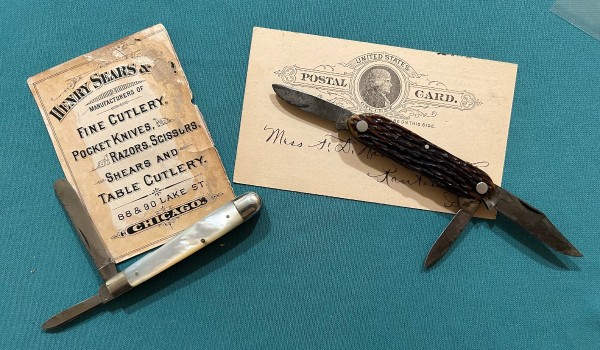 HENRY SEARS &
MANUFACTURERS OF
FINE CUTLERY,
POCKET KNIVES,
RAZORS, SCISSORS,
SHEARS AND
TABLE CUTLERY.
68 & 90 LAKE ST.
CHICAGO.
UNITED STATES
POSTAL CARD.
ON THIS SIDE.
Miss